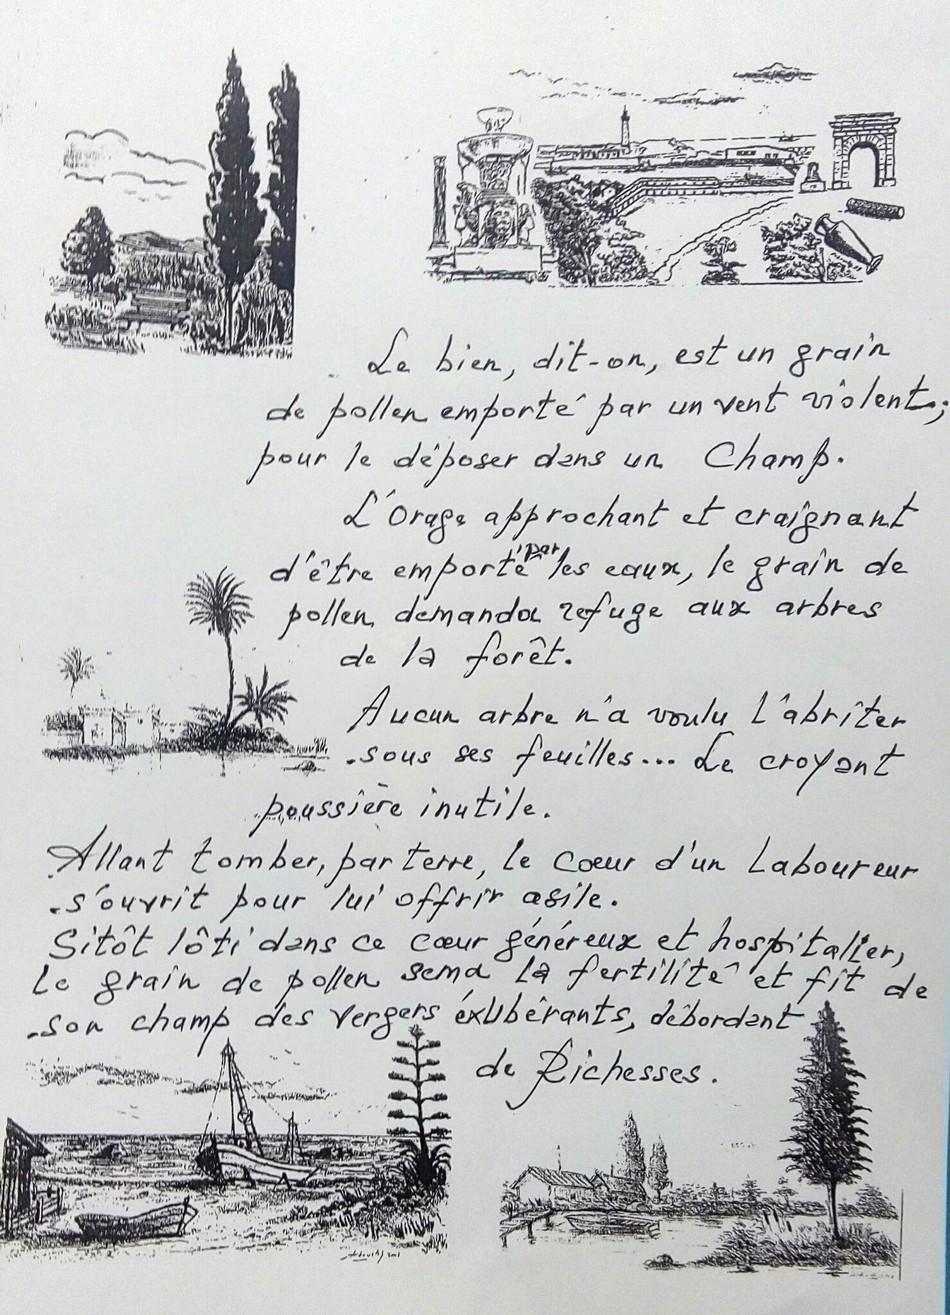 Le bien, dit-on, est un grain
de pollen emporté par un vent violent,;
pour le déposer dans un Champ.
L'Orage approchant et craignant
d'être emporté par les eaux, le grain de
pollen demanda refuge aux arbres
de la forêt.
Aucun arbre n'a voulu l'abriter
sous ses feuilles... Le croyant
poussière inutile.
Allant tomber, par terre, le Cœur d'un Laboureur
s'ouvrit pour lui offrir asile.
Sitôt lôti dans ce cœur généreux et hospitalier,
le grain de pollen sema la fertilité et fit de
son champ des vergers éxubérants, débordant
de Richesses.